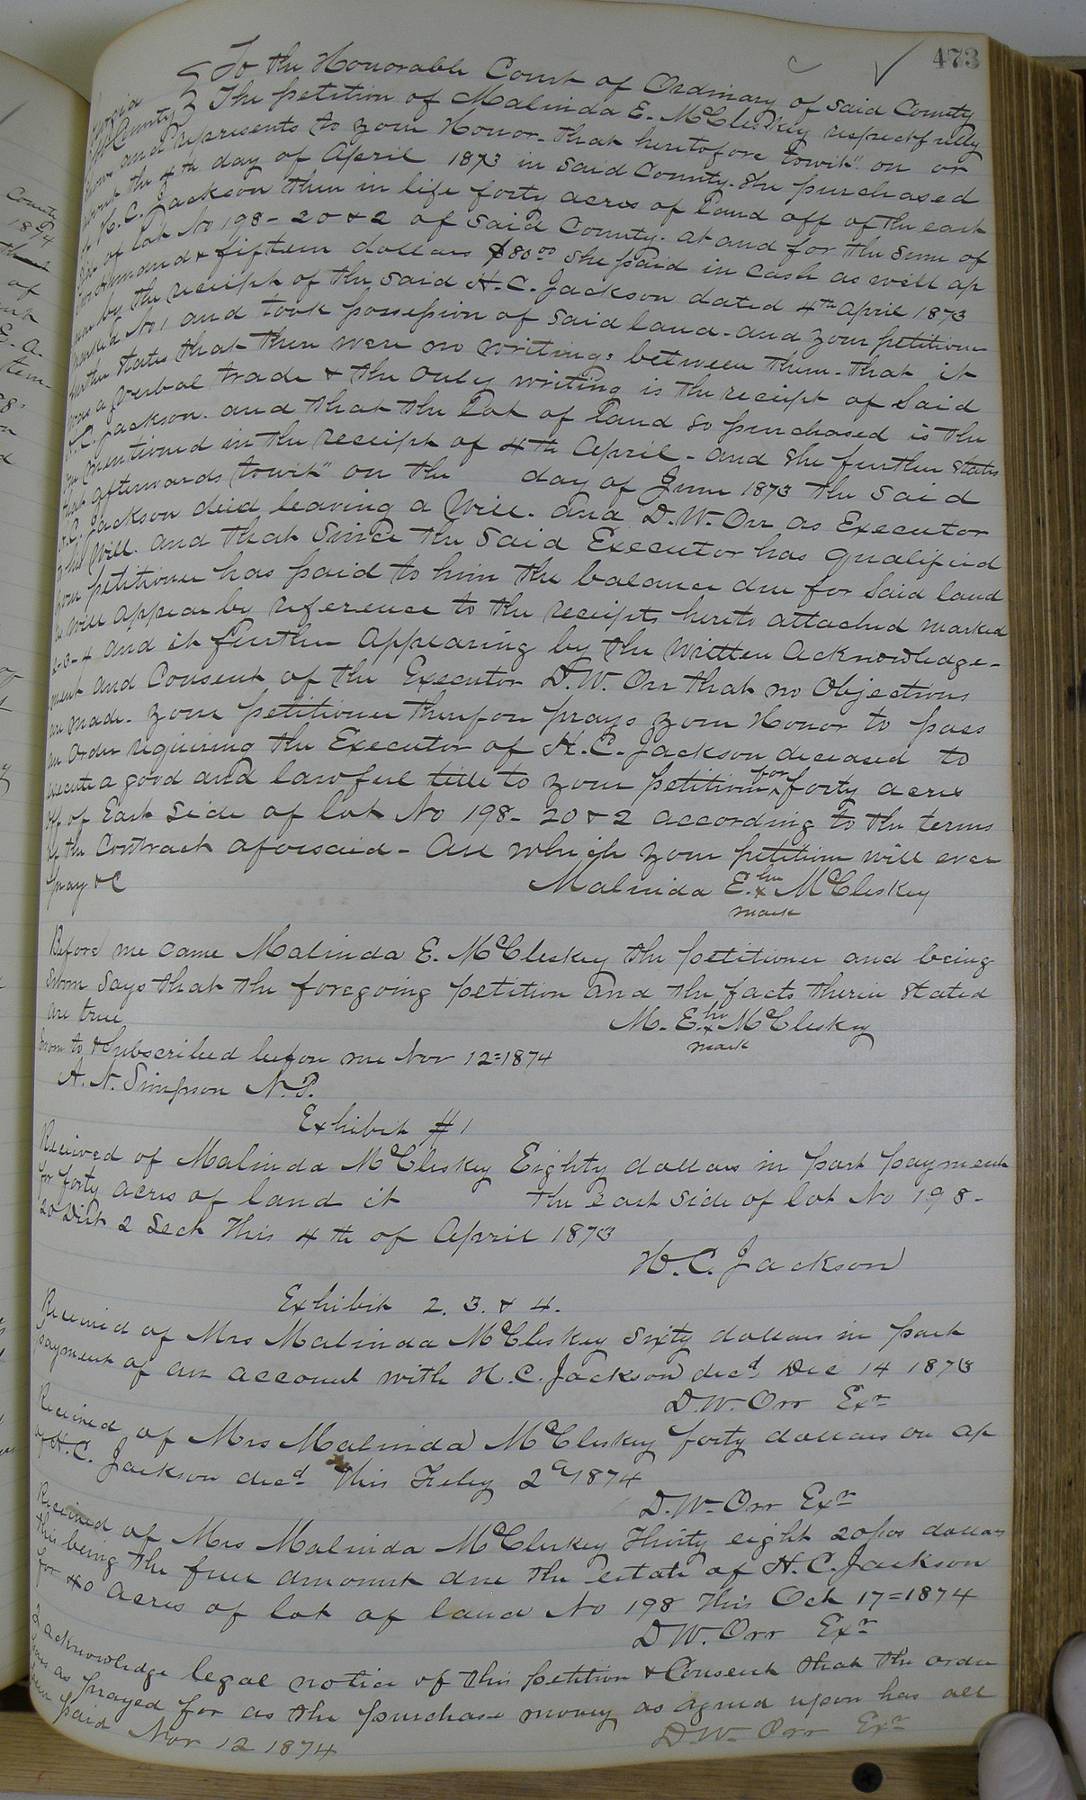 473
To the Honorable Court of Ordinary of said County
County The petition of Malinda E. McCleskey respectfully
and represents to your Honor - that heretofore towit" on or
the 4th day of April 1873 in said County. She purchased
of H. C. Jackson then in life forty acres of land off of the east
of Lot No 198 - 20 & 2 of said County. at and for the sum of
& fifteen dollars $80 00 she paid in cash as will ap
by the receipt of the said H. C. Jackson dated 4th April 1873
No 1 and took possession of said land - and your petitioner
further states that there were no writings between them - that it
was a verbal trade & the only writing is the receipt of said
H. C. Jackson. and that the Lot of land so purchased is the
mentioned in the receipt of 4th April - and she further states
that afterwards towit" on the day of June 1873 the said
H. C. Jackson died leaving a Will. and D. W. Orr as Executor
Will. and that since the said Executor has qualified
your petitioner has paid to him the balance due for said land
as will appear by reference to the receipts hereto attached marked
2-3-4 and it further appearing by the written acknowledge-
ment and Consent of the Executor D. W. Orr that no Objections
are made. your petitioner therefore prays your Honor to pass
an Order requiring the Executor of H. C. Jackson deceased to
execute a good and lawful title to your petitioner for forty acres
off of East side of lot No 198 - 20 & 2 according to the terms
of the Contract aforesaid - All which your petitioner will ever
pray &C Malinda E. her x McCleskey
mark
Before me came Malinda E. McCleskey the petitioner and being
sworn says that the foregoing petition and the facts therein stated
are true M. E. her x McCleskey
mark
Sworn to & Subscribed before me Nov 12=1874
A. N. Simpson N. P.
Exhibit # 1
Received of Malinda McCleskey Eighty dollars in part payment
for forty acres of land it the East side of lot No 198 -
20 Dist 2 Sect This 4th of April 1873
H. C. Jackson
Exhibit 2. 3. & 4.
Received of Mrs Malinda McCleskey Sixty dollars in part
payment of an account with H. C. Jackson decd Dec 14 1873
D. W. Orr Exr
Received of Mrs Malinda McCleskey forty dollars on ac
of H. C. Jackson decd This Feby 2d 1874
D. W. Orr Exr
Received of Mrs Malinda McCleskey Thirty eight 20/00 dollars
this being the full amount due the estate of H. C. Jackson
for 40 acres of lot of land No 198 This Oct 17=1874
D. W. Orr Exr
I acknowledge legal notice of this petition & Consent that the order
as prayed for as the purchase money as agreed upon has all
been paid Nov 12 1874
D. W. Orr Exr